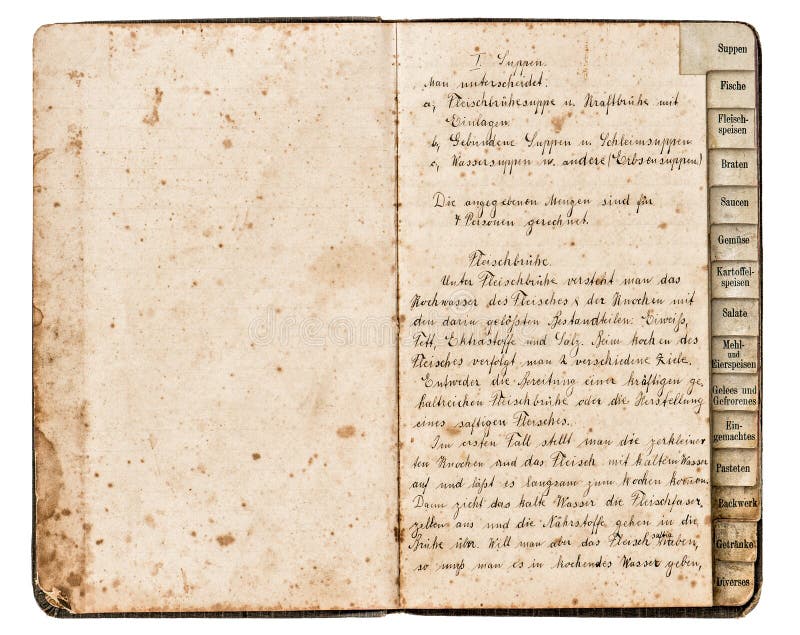 I. Suppen.
Man unterscheidet:
a, Fleischbrühesuppe u. Kraftbrühe mit
Einlagen.
b, Gebundene Suppen u. Schleimsuppen
c, Wassersuppen u. andere (Erbsensuppen)
Die angegebenen Mengen sind für
4 Personen gerechnet.
Fleischbrühe.
Unter Fleischbrühe versteht man das
Kochwasser des Fleisches & der Knochen mit
den darin gelößten Bestandteilen: Eiweiß,
Fett, Extrastoffe und Salz. Beim kochen des
Fleisches verfolgt man 2 verschiedene Ziele.
Entweder die Bereitung einer kräftigen ge-
haltreichen Fleischbrühe oder die Herstellung
eines saftigen Fleisches.
Im ersten Fall stellt man die zerkleiner
ten Knochen und das Fleisch mit kaltem Wasser
auf und läßt es langsam zum Kochen kommen.
Dann zieht das kalte Wasser die Fleischfaser-
zellen aus und die Nährstoffe gehen in die
Brühe über. Will man aber das Fleisch saftig haben,
so muß man es in kochendes Wasser geben,
Suppen
Fische
Fleisch-
speisen
Braten
Saucen
Gemüse
Kartoffel-
speisen
Salate
Mehl-
und
Eierspeisen
Gelees und
Gefrorenes
Ein-
gemachtes
Pasteten
Backwerk
Getränke
Diverses
dreamstime